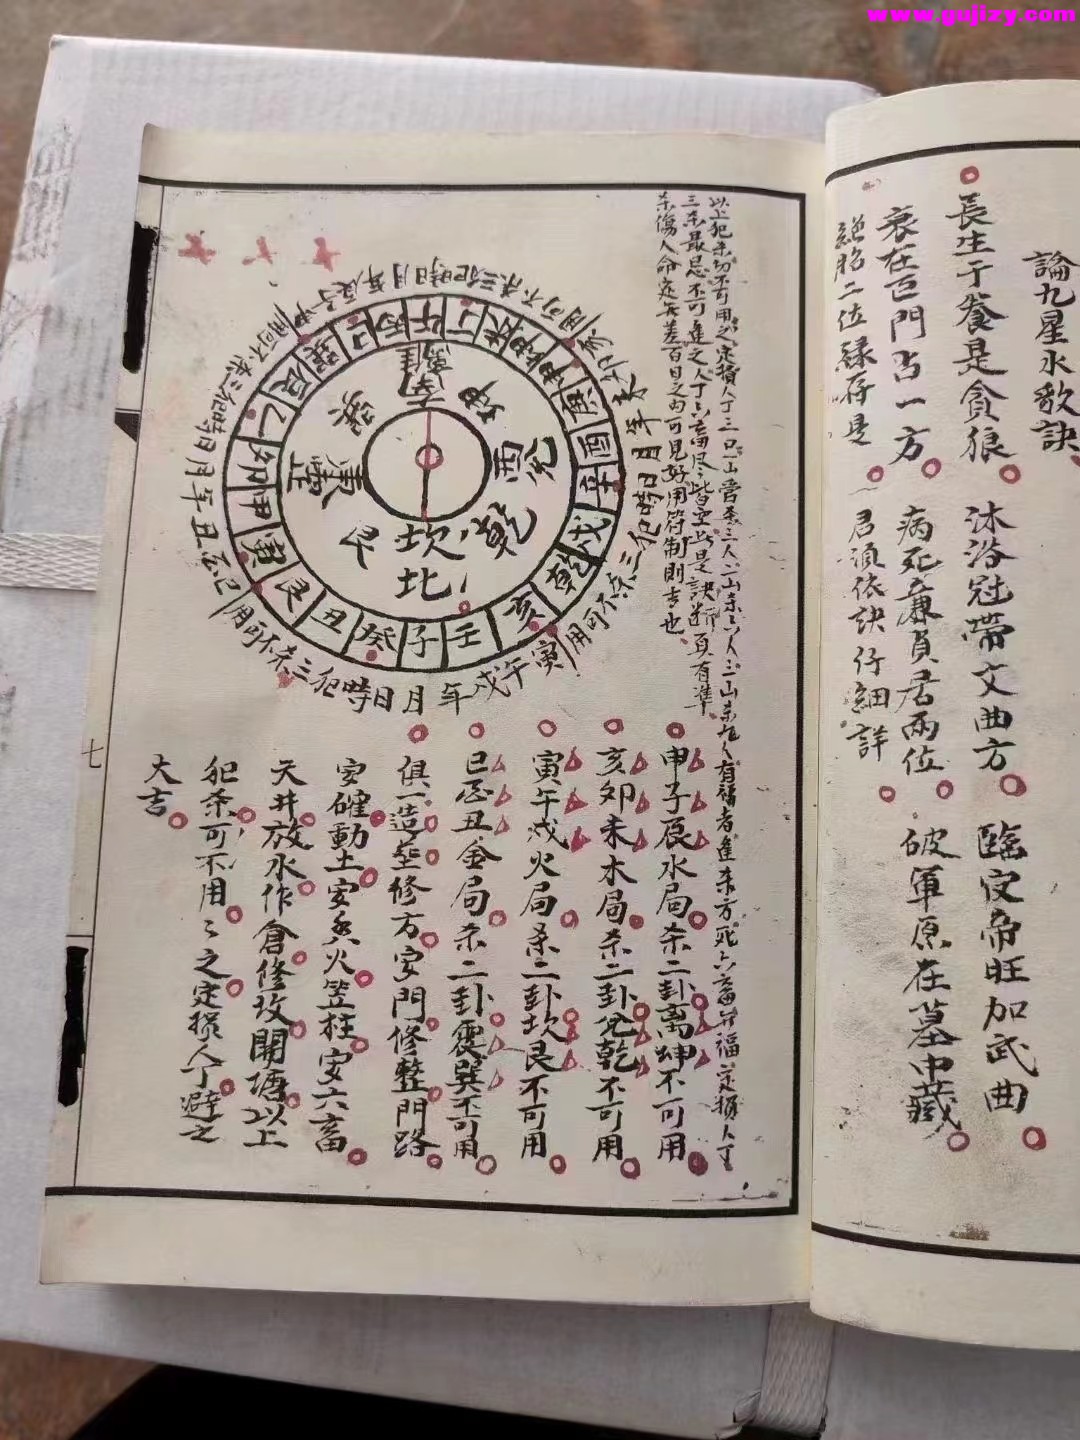 www.gujizy.com
論九星水歌訣
長生于養是貪狼
沐浴冠帶文曲方
臨官帝旺加武曲
衰在巨門占一方
病死廉貞居兩位
破軍原在墓中藏
絕胎二位祿存是
君須依訣仔細詳
以上犯杀勿不可用之定損人丁三只一山管杀三人二山杀六人三山杀九人有福者進杀方死六畜
三杀最忌不可進之人丁六畜尽皆空此是訣断須有準
杀傷人命定無差百日之內可見好用符制則吉也
南 離
坤
西 兌
乾
坎 北
艮
東 震
巽
午 丁 未 坤 申 庚 酉 辛 戌 乾 亥 壬 子 癸 丑 艮 寅 甲 卯 乙 辰 巽 巳 丙
申子 年月日時犯三杀不可用
亥卯未年月日時犯三杀不可用
寅午戌年月日時犯三杀不可用
巳酉丑年月日時犯三杀不可用
申子辰水局杀二卦离坤不可用
亥卯未木局杀二卦兌乾不可用
寅午戌火局杀二卦坎艮不可用
巳酉丑金局杀二卦震巽不可用
俱一造塟修方安門修整門路
安碓動土安香火竪柱安六畜
天井放水作倉修改開塘以上
犯杀可不用之定損人丁避之
大吉
七